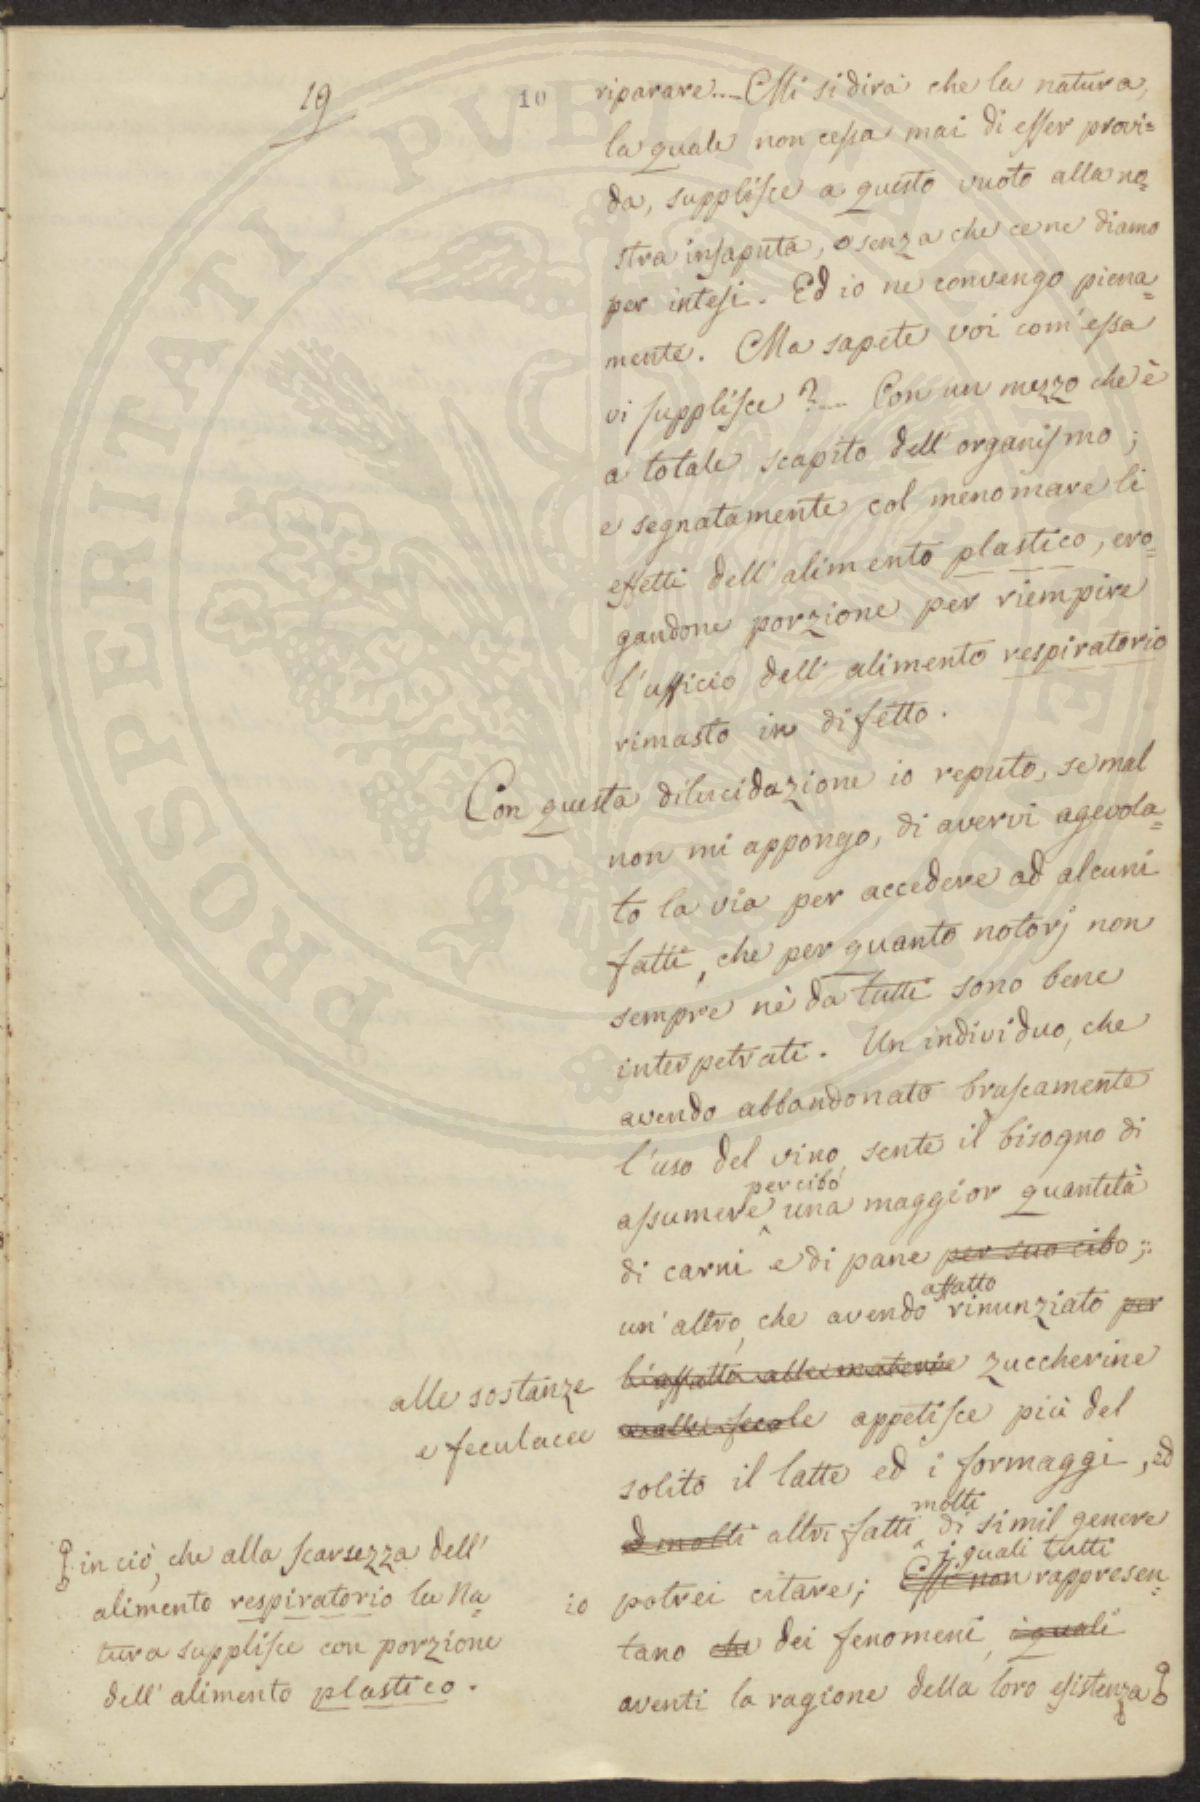 19
10
riparare.... Mi si dirà che la natura,
la quale non cessa mai di esser provi=
da, supplisce a questo vuoto alla no=
stra insaputa, o senza che ce ne diamo
per intesi. Ed io ne convengo piena=
mente. Ma sapete voi com'essa
vi supplisce?.... Con un mezzo che è
a totale scapito dell'organismo;
e segnatamente col menomare li
effetti dell'alimento plastico, ero=
gandone porzione per riempire
l'ufficio dell'alimento respiratorio
rimasto in difetto.
Con questa dilucidazione io reputo, se mal
non mi appongo, di avervi agevola=
to la via per accedere ad alcuni
fatti, che per quanto notorj non
sempre nè da tutti sono bene
interpetrati. Un individuo, che
avendo abbandonato bruscamente
l'uso del vino, sente il bisogno di
per cibo
assumere una maggior quantità
di carni e di pane per suo cibo;
affatto
un'altro, che avendo rinunziato per
alle sostanze
li affatto alle materie zuccherine
e feculacee
e alle fecole appetisce più del
solito il latte ed i formaggi, ed
molti
ed molti altri fatti di simil genere
i quali tutti
io potrei citare; Essi non rappresen=
tano che dei fenomeni, i quali
aventi la ragione della loro esistenza
in ciò, che alla scarsezza dell'
alimento respiratorio la Na=
tura supplisce con porzione
dell'alimento plastico.
PROSPERITATI PVBLICAE